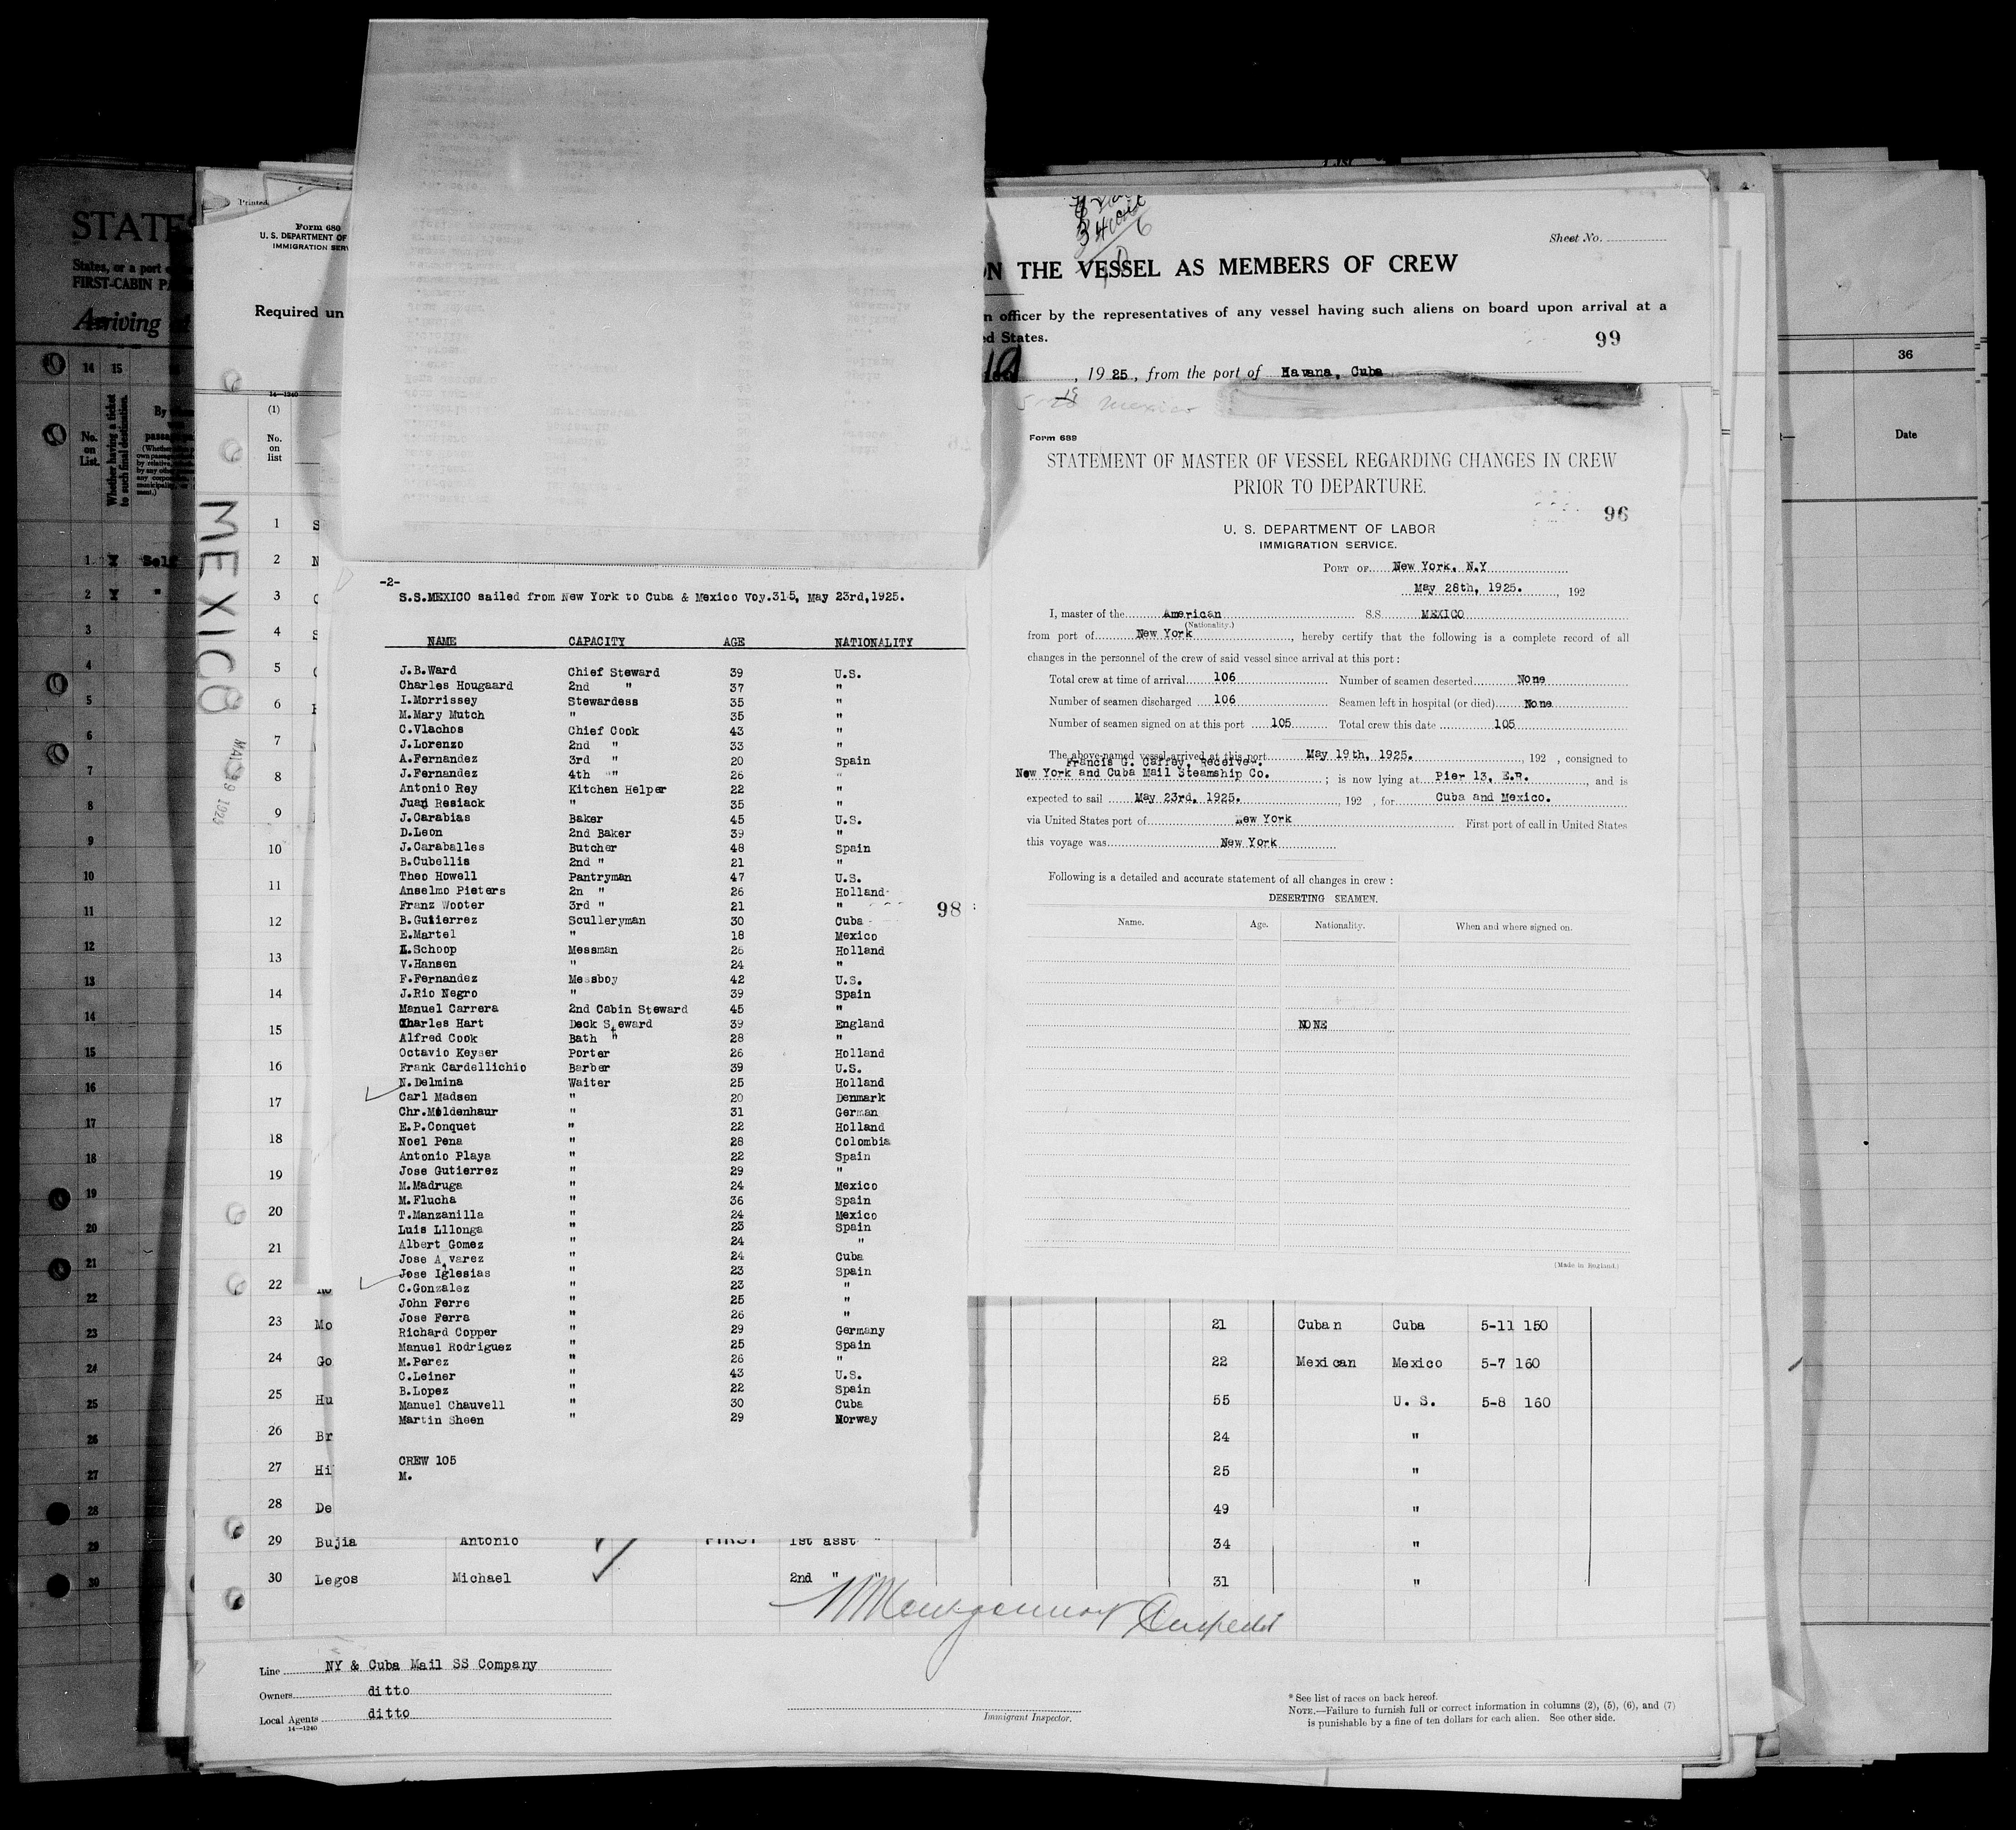 STATES
States, or a port
FIRST-CABIN
Arriving
14 15
No. on List.
Whether having a ticket to such final destination.
1 Self
2 "
3
4
5
6
7
8
9
10
11
12
13
14
15
16
17
18
19
20
21
22
23
24
25
26
27
28
29
30
MEXICO
Printed
Form 680
U. S. DEPARTMENT OF
IMMIGRATION SERV
Required un
14—1240
(1)
No. on list
1 S
2 N
3
4
5
6
7
8
9
10
11
12
13
14
15
16
17
18
19
20
21
22
23 Mo
24 Go
25 Hu
26 Br
27 Hi
28 De
29 Bujia Antonio FIRST 1st asst "
30 Legos Michael 2nd " "
Sheet No.
ON THE VESSEL AS MEMBERS OF CREW
n officer by the representatives of any vessel having such aliens on board upon arrival at a
ed States.
99
19
, 19 25, from the port of Havana, Cuba
Mexico
-2-
S.S.MEXICO sailed from New York to Cuba & Mexico Voy.315, May 23rd,1925.
NAME CAPACITY AGE NATIONALITY
J.B.Ward Chief Steward 39 U.S.
Charles Hougaard 2nd " 37 "
I.Morrissey Stewardess 35 "
M.Mary Mutch " 35 "
C.Vlachos Chief Cook 43 "
J.Lorenzo 2nd " 33 "
A.Fernandez 3rd " 20 Spain
J.Fernandez 4th " 26 "
Antonio Rey Kitchen Helper 22 "
Juan Resiack " 35 "
J.Carabias Baker 45 U.S.
D.Leon 2nd Baker 39 "
J.Caraballes Butcher 48 Spain
B.Cubellis 2nd " 21 "
Theo Howell Pantryman 47 U.S.
Anselmo Pieters 2n " 26 Holland
Franz Wooter 3rd " 21 "
98
B.Gutierrez Sculleryman 30 Cuba
E.Martel " 18 Mexico
A.Schoop Messman 26 Holland
V.Hansen " 24 "
F.Fernandez Messboy 42 U.S.
J.Rio Negro " 39 Spain
Manuel Carrera 2nd Cabin Steward 45 "
Charles Hart Deck Steward 39 England
Alfred Cook Bath " 28 "
Octavio Keyser Porter 26 Holland
Frank Cardellichio Barber 39 U.S.
N.Delmina Waiter 25 Holland
Carl Madsen " 20 Denmark
Chr.Moldenhaur " 31 German
E.P.Conquet " 22 Holland
Noel Pena " 28 Colombia
Antonio Playa " 22 Spain
Jose Gutierrez " 29 "
M.Madruga " 24 Mexico
M.Flucha " 36 Spain
T.Manzanilla " 24 Mexico
Luis Lllonga " 23 Spain
Albert Gomez " 24 "
Jose Alvarez " 24 Cuba
Jose Iglesias " 23 Spain
C.Gonzalez " 23 "
John Ferre " 25 "
Jose Ferra " 26 "
Richard Copper " 29 Germany
Manuel Rodriguez " 25 Spain
M.Perez " 26 "
C.Leiner " 43 U.S.
B.Lopez " 22 Spain
Manuel Chauvell " 30 Cuba
Martin Sheen " 29 Norway
CREW 105
M.
Form 689
STATEMENT OF MASTER OF VESSEL REGARDING CHANGES IN CREW
PRIOR TO DEPARTURE.
96
U. S. DEPARTMENT OF LABOR
IMMIGRATION SERVICE.
PORT OF New York, N.Y
May 28th, 1925. , 192
I, master of the American S.S. MEXICO
(Nationality.)
from port of New York , hereby certify that the following is a complete record of all
changes in the personnel of the crew of said vessel since arrival at this port:
Total crew at time of arrival 106 Number of seamen deserted None
Number of seamen discharged 106 Seamen left in hospital (or died) None
Number of seamen signed on at this port 105 Total crew this date 105
The above-named vessel arrived at this port May 19th, 1925. , 192 , consigned to
Francis G. Caffey, Receiver.
New York and Cuba Mail Steamship Co. ; is now lying at Pier 13, E.R. , and is
expected to sail May 23rd, 1925. , 192 , for Cuba and Mexico.
via United States port of New York First port of call in United States
this voyage was New York
Following is a detailed and accurate statement of all changes in crew:
DESERTING SEAMEN.
Name. Age. Nationality. When and where signed on.
NONE
(Made in England.)
21 Cuban Cuba 5-11 150
22 Mexican Mexico 5-7 160
55 U. S. 5-8 160
24 "
25 "
49 "
34 "
31 "
Line NY & Cuba Mail SS Company
Owners ditto
Local Agents ditto
14—1240
Immigrant Inspector.
* See list of races on back hereof.
NOTE.—Failure to furnish full or correct information in columns (2), (5), (6), and (7)
is punishable by a fine of ten dollars for each alien. See other side.
36
Date